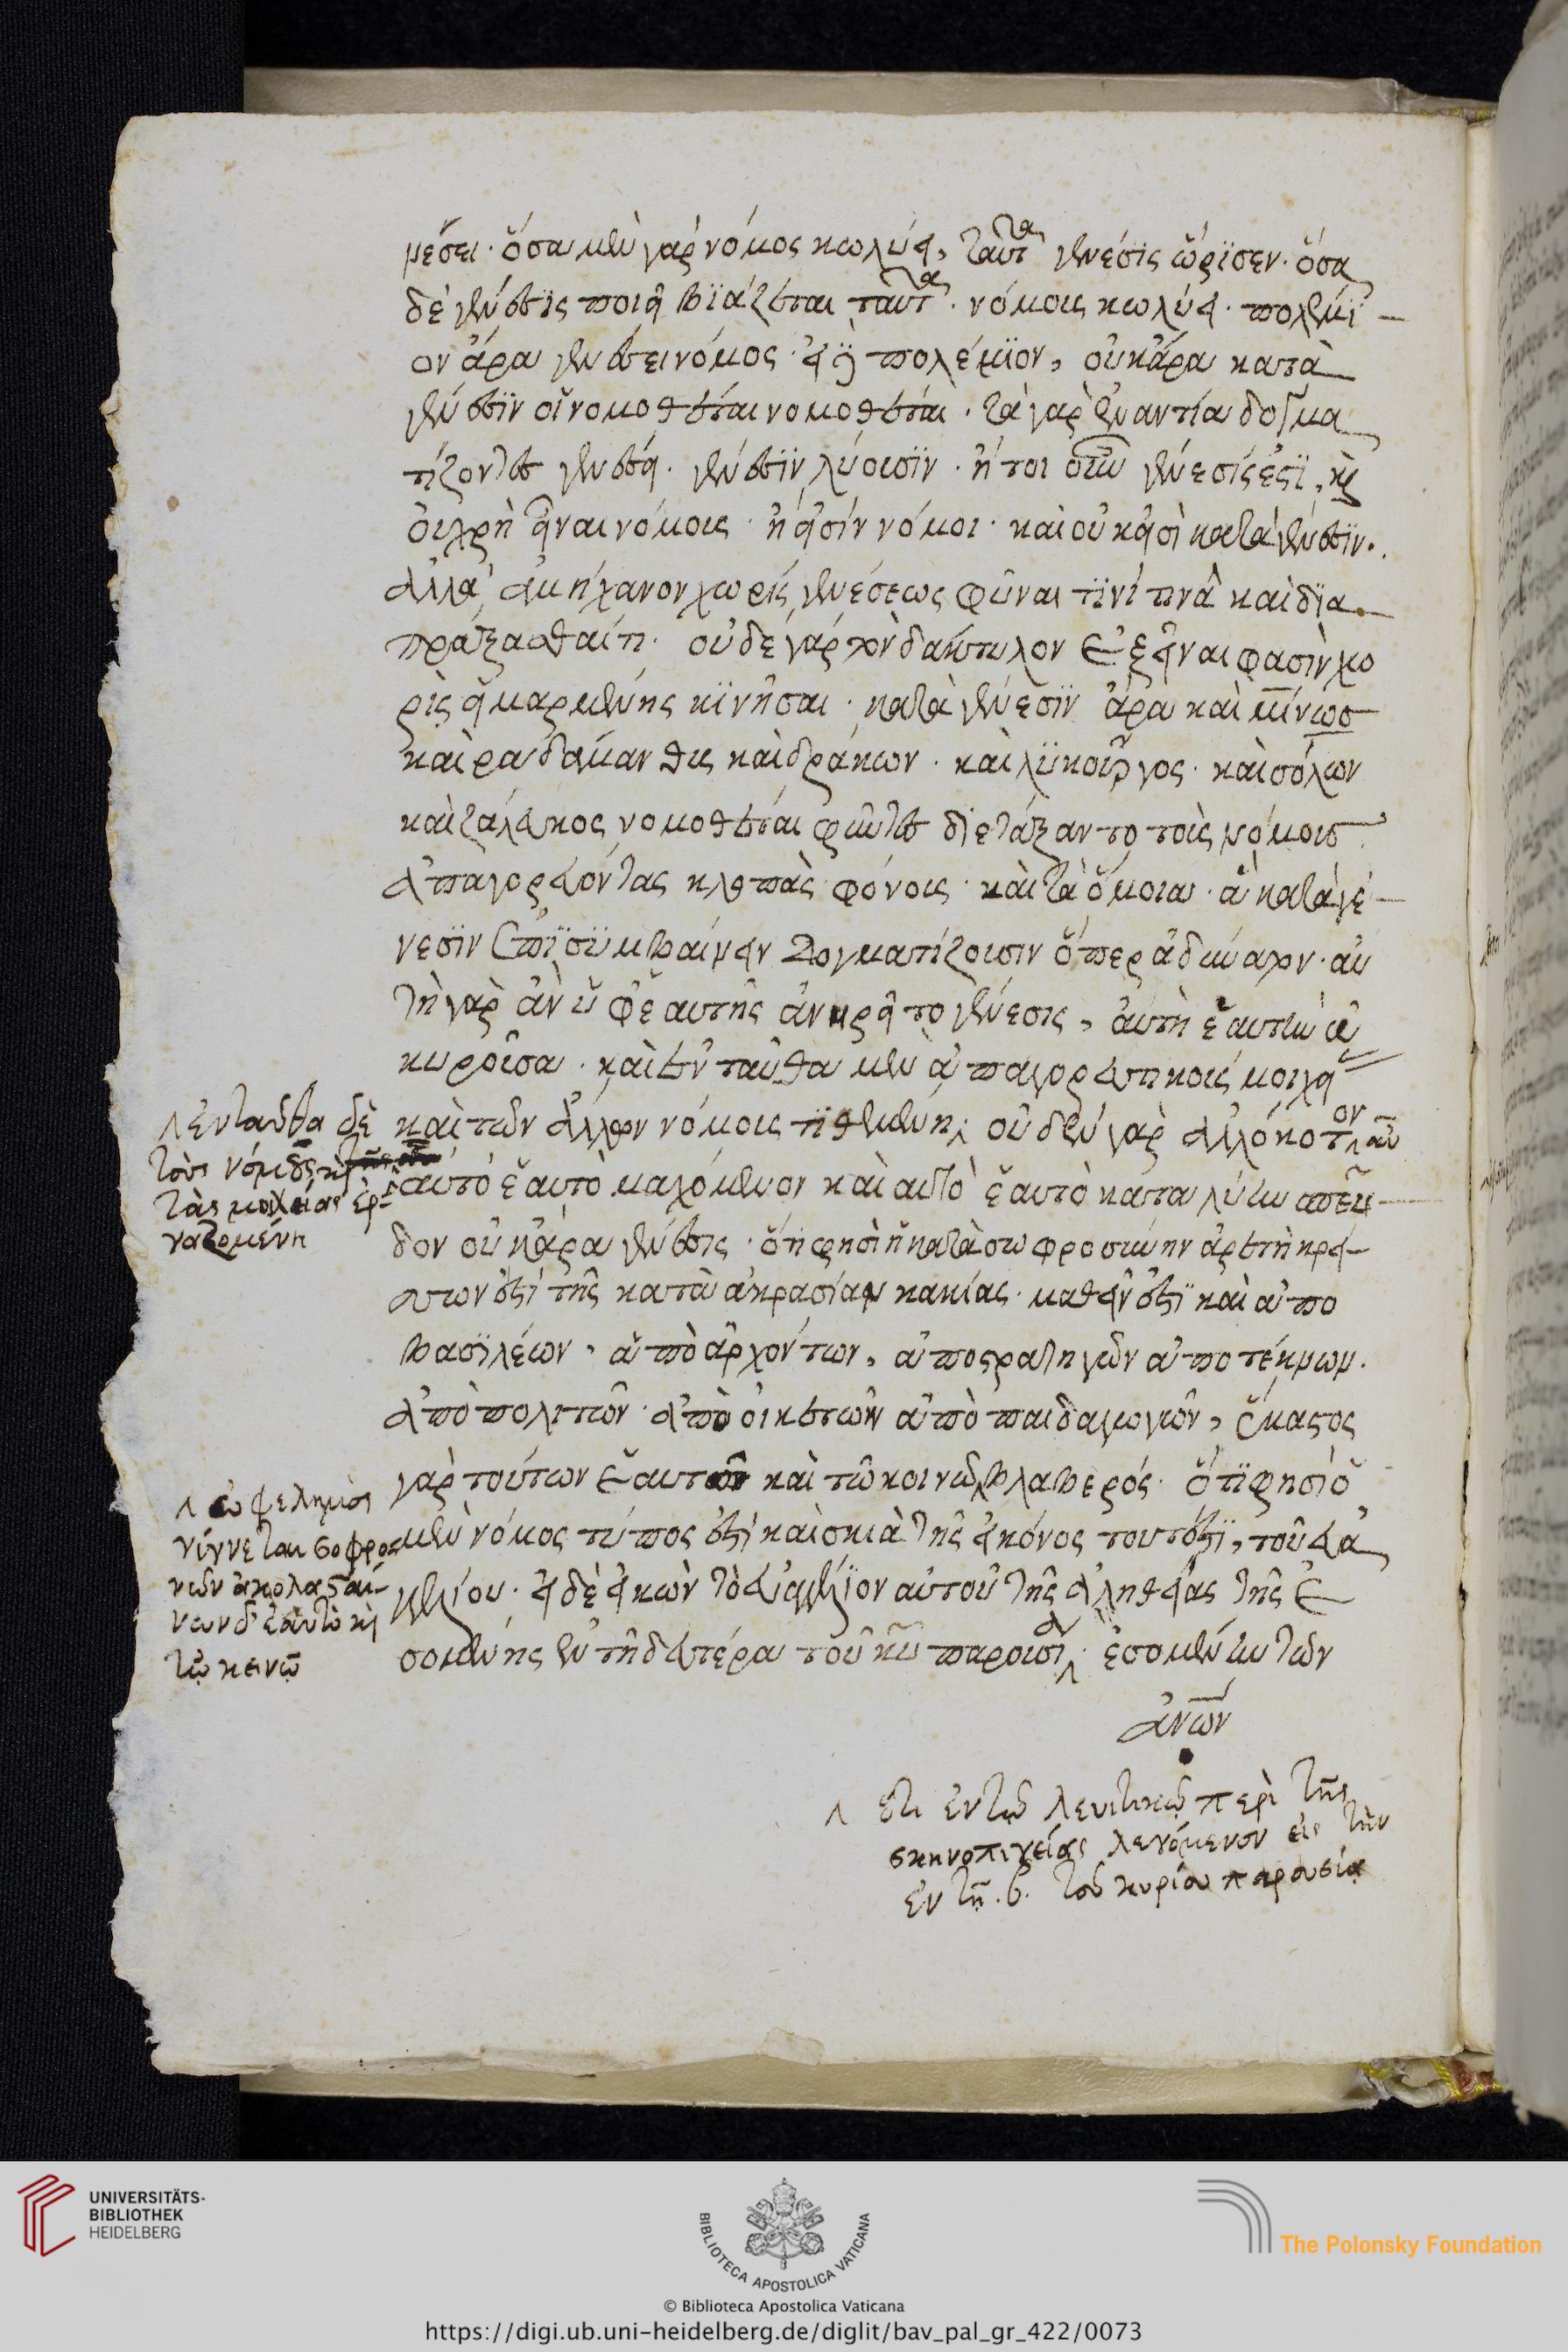 μέσει· ὅσα μὲν γὰρ νόμος κωλύει, ταῦτα γένεσις ὥρισεν· ὅσα
δὲ γένεσις ποιεῖ βιάζεται ταῦτα· νόμος κωλύει· πολέμι
ον ἄρα γενέσει νόμος· εἰ δὲ πολέμιον, οὐκ ἄρα κατὰ
γένεσιν οἱ νομοθέται νομοθέται· τὰ γὰρ ἐναντία δογμα
τίζοντες γενέσει· γένεσιν λύουσιν· ἤτοι οὖν γένεσίς ἐστι, καὶ
οὐ χρὴ εἶναι νόμους· ἢ εἰσὶν νόμοι· καὶ οὐκ εἰσὶ κατὰ γένεσιν·
ἀλλὰ ἀμήχανον χωρὶς γενέσεως φῦναι τινί τινα καὶ δια
πράξασθαί τι· οὐδὲ γὰρ τὸν δάκτυλον ἐξεῖναι φασὶν χω
ρὶς εἱμαρμένης κινῆσαι· κατὰ γένεσιν ἄρα καὶ μίνωσ
καὶ ραδάμανθυς καὶ δράκων· καὶ λυκοῦργος· καὶ σόλων
καὶ ζάλευκος νομοθέται φύντες διετάξαντο τοὺς νόμουσ
ἀπαγορεύοντας κλοπὰς φόνους· καὶ τὰ ὅμοια· ἃ κατὰ γέ
νεσιν συμβαίνειν δογματίζουσιν ὅπερ ἀδύνατον· αὐ
τὴ γὰρ ἂν ὑφ ἑαυτῆς ἀνῃρεῖτο γένεσις, αὐτὴ ἑαυτὴν ἀ
κυροῦσα· καὶ ἐνταῦθα μὲν ἀπαγορευτικοὺς μοιχεί
καὶ τῶν ἄλλων νόμους τιθεμένη, οὐδὲν γὰρ ἀλλόκοτον
αὐτὸ ἑαυτὸ μαχόμενον καὶ αὐτὸ ἑαυτὸ καταλύων
δον οὐκ ἄρα γένεσις· ὅτι φησὶ ἡ κατὰ σωφροσύνην ἀρετὴ κρεῖ
ττων ἐστὶ τῆς κατὰ ἀκρασίαν κακίας· μαθεῖν ἔστι καὶ ἀπο
βασιλέων, ἀπὸ ἀρχόντων, ἀπο στρατηγῶν ἀπο τέκνων·
ἀπὸ πολιτῶν· ἀπὸ οἰκετῶν ἀπὸ παιδαγωγῶν, ἕκαστος
γὰρ τούτων ἑαυτῶ καὶ τῶ κοινῶ βλαβερός· ὅτι φησὶ ὁ
μὲν νόμος τύπος ἐστὶ καὶ σκιὰ τῆς εἰκόνος τουτέστι, τοῦ εὐα
γγελίου· ἡ δὲ εἰκὼν τὸ εὐαγγέλιον αὐτοῦ τῆς ἀληθείας τῆς ἐ
σομένης ἐν τῇ δευτέρα τοῦ κυ παρουσία· ἐσομένην τῶν
ἀνων
ἐνταῦθα δὲ
τοὺς νόμους καὶ
τὰς μοιχείας ἐρ
γαζομένη
ὠφέλημος
γίγνεται σοφρο
νῶν ἀκολασταί
νων δ᾽ ἑαυτὸ καὶ
τῷ κεινῷ
ὅτι ἐν τῷ λευιτικῷ περὶ τῆς
σκηνοπιγείας λεγόμενον εἰς τὴν
ἐν τῇ .β. τοῦ κυρίου παρουσία
UNIVERSITÄTS-
BIBLIOTHEK
HEIDELBERG
BIBLIOTECA APOSTOLICA VATICANA
The Polonsky Foundation
© Biblioteca Apostolica Vaticana
https://digi.ub.uni-heidelberg.de/diglit/bav_pal_gr_422/0073